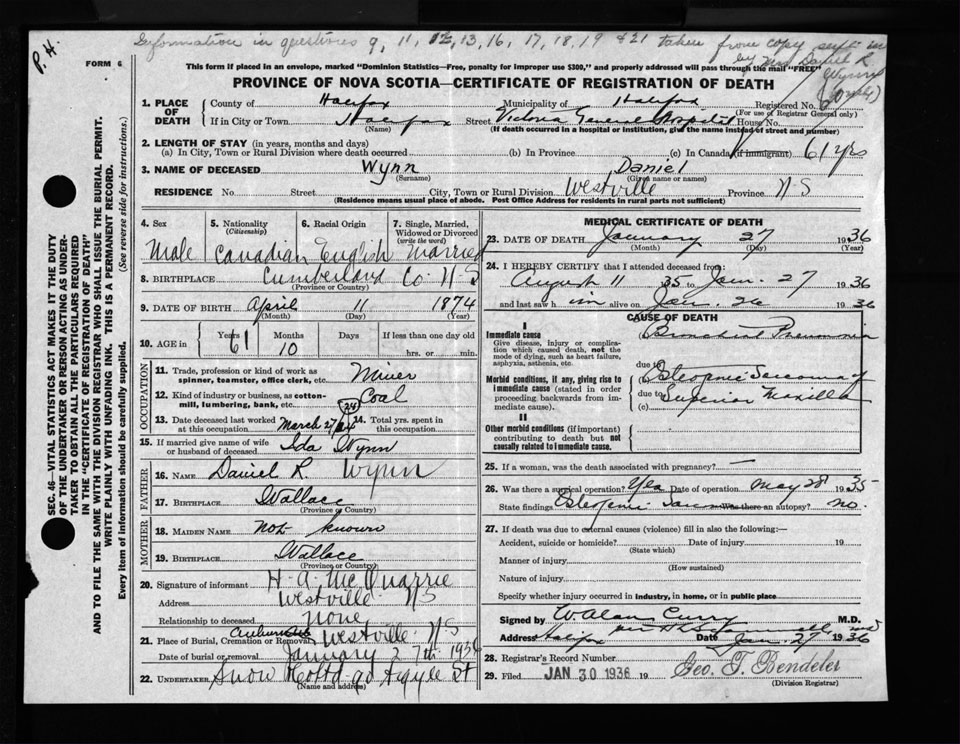 Information in questions 9, 11, 12, 13, 16, 17, 18, 19 & 21 taken from copy sent in
by Mrs Daniel R.
Wynn
P. H.
FORM 6
This form if placed in an envelope, marked "Dominion Statistics—Free, penalty for improper use $300," and properly addressed will pass through the mail "FREE"
PROVINCE OF NOVA SCOTIA—CERTIFICATE OF REGISTRATION OF DEATH
SEC. 46—VITAL STATISTICS ACT MAKES IT THE DUTY
OF THE UNDERTAKER OR PERSON ACTING AS UNDER-
TAKER TO OBTAIN ALL THE PARTICULARS REQUIRED
IN THE "CERTIFICATE OF REGISTRATION OF DEATH"
AND TO FILE THE SAME WITH THE DIVISION REGISTRAR WHO SHALL ISSUE THE BURIAL PERMIT.
WRITE PLAINLY WITH UNFADING INK. THIS IS A PERMANENT RECORD.
Every item of information should be carefully supplied. (See reverse side for instructions.)
1. PLACE OF DEATH
County of Halifax Municipality of Halifax Registered No.
(For use of Registrar General only)
If in City or Town Halifax Street Victoria General Hospital House No.
(Name) (If death occurred in a hospital or institution, give the name instead of street and number)
2. LENGTH OF STAY (in years, months and days)
(a) In City, Town or Rural Division where death occurred (b) In Province (c) In Canada (if immigrant) 61 yrs
3. NAME OF DECEASED Wynn Daniel
(Surname) (Given name or names)
RESIDENCE No. Street City, Town or Rural Division Westville Province N S
(Residence means usual place of abode. Post Office Address for residents in rural parts not sufficient)
4. Sex 5. Nationality (Citizenship) 6. Racial Origin 7. Single, Married, Widowed or Divorced (write the word)
Male Canadian English Married
8. BIRTHPLACE Cumberland Co N-S
(Province or Country)
9. DATE OF BIRTH April 11 1874
(Month) (Day) (Year)
10. AGE in Years 61 Months 10 Days If less than one day old
hrs. or min.
OCCUPATION
11. Trade, profession or kind of work as
spinner, teamster, office clerk, etc. Miner
12. Kind of industry or business, as cotton-
mill, lumbering, bank, etc. Coal
13. Date deceased last worked at this occupation March 27/34 14. Total yrs. spent in this occupation
24
15. If married give name of wife
or husband of deceased Ida Wynn
FATHER
16. NAME Daniel R. Wynn
17. BIRTHPLACE Wallace
(Province or Country)
MOTHER
18. MAIDEN NAME Not known
19. BIRTHPLACE Wallace
(Province or Country)
20. Signature of informant H. A. McQuarrie
Address Westville N S
Relationship to deceased None
21. Place of Burial, Cremation or Removal Westville N-S
Date of burial or removal January 27th 1936
22. UNDERTAKER Snow Co Ltd 90 Argyle St
(Name and address)
MEDICAL CERTIFICATE OF DEATH
23. DATE OF DEATH January 27 1936
(Month) (Day) (Year)
24. I HEREBY CERTIFY that I attended deceased from:
August 11 35 to Jan. 27 1936
and last saw him alive on Jan. 26 1936
CAUSE OF DEATH
I
Immediate cause Bronchial Pneumonia
Give disease, injury or complica-
tion which caused death, not the
mode of dying, such as heart failure,
asphyxia, asthenia, etc.
due to
Morbid conditions, if any, giving rise to
immediate cause (stated in order
proceeding backwards from im-
mediate cause).
(b) Osteogenic Sarcoma of
due to
(c) Superior Maxilla
II
Other morbid conditions (if important)
contributing to death but not
causally related to immediate cause.
25. If a woman, was the death associated with pregnancy? —
26. Was there a surgical operation? Yes Date of operation May 28 1935
State findings Osteogenic Sarcoma Was there an autopsy? no.
27. If death was due to external causes (violence) fill in also the following:—
Accident, suicide or homicide? Date of injury 19
(State which)
Manner of injury
(How sustained)
Nature of injury
Specify whether injury occurred in industry, in home, or in public place
Signed by W. Alan Curry M.D.
Address Halifax Date Jan. 27 1936
28. Registrar's Record Number
29. Filed JAN 30 1936 19 Geo. T. Bendeler
(Division Registrar)